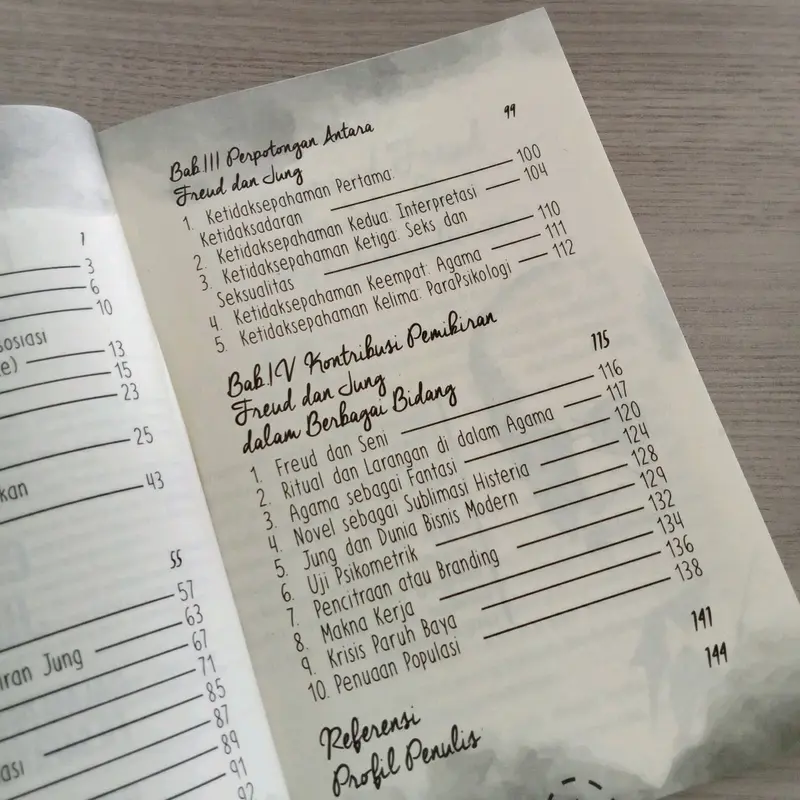 1
3
6
10
sosiasi
e) 13
15
23
25
kan
43
55
57
63
iran Jung 67
71
85
asi 87
89
91
92
Bab III Perpotongan Antara 99
Freud dan Jung
1. Ketidaksepahaman Pertama:
Ketidaksadaran 100
2. Ketidaksepahaman Kedua: Interpretasi 104
3. Ketidaksepahaman Ketiga: Seks dan
Seksualitas 110
4. Ketidaksepahaman Keempat: Agama 111
5. Ketidaksepahaman Kelima: ParaPsikologi 112
Bab IV Kontribusi Pemikiran
Freud dan Jung
dalam Berbagai Bidang 115
1. Freud dan Seni 116
2. Ritual dan Larangan di dalam Agama 117
3. Agama sebagai Fantasi 120
4. Novel sebagai Sublimasi Histeria 124
5. Jung dan Dunia Bisnis Modern 128
6. Uji Psikometrik 129
7. Pencitraan atau Branding 132
8. Makna Kerja 134
9. Krisis Paruh Baya 136
10. Penuaan Populasi 138
Referensi 141
Profil Penulis 144